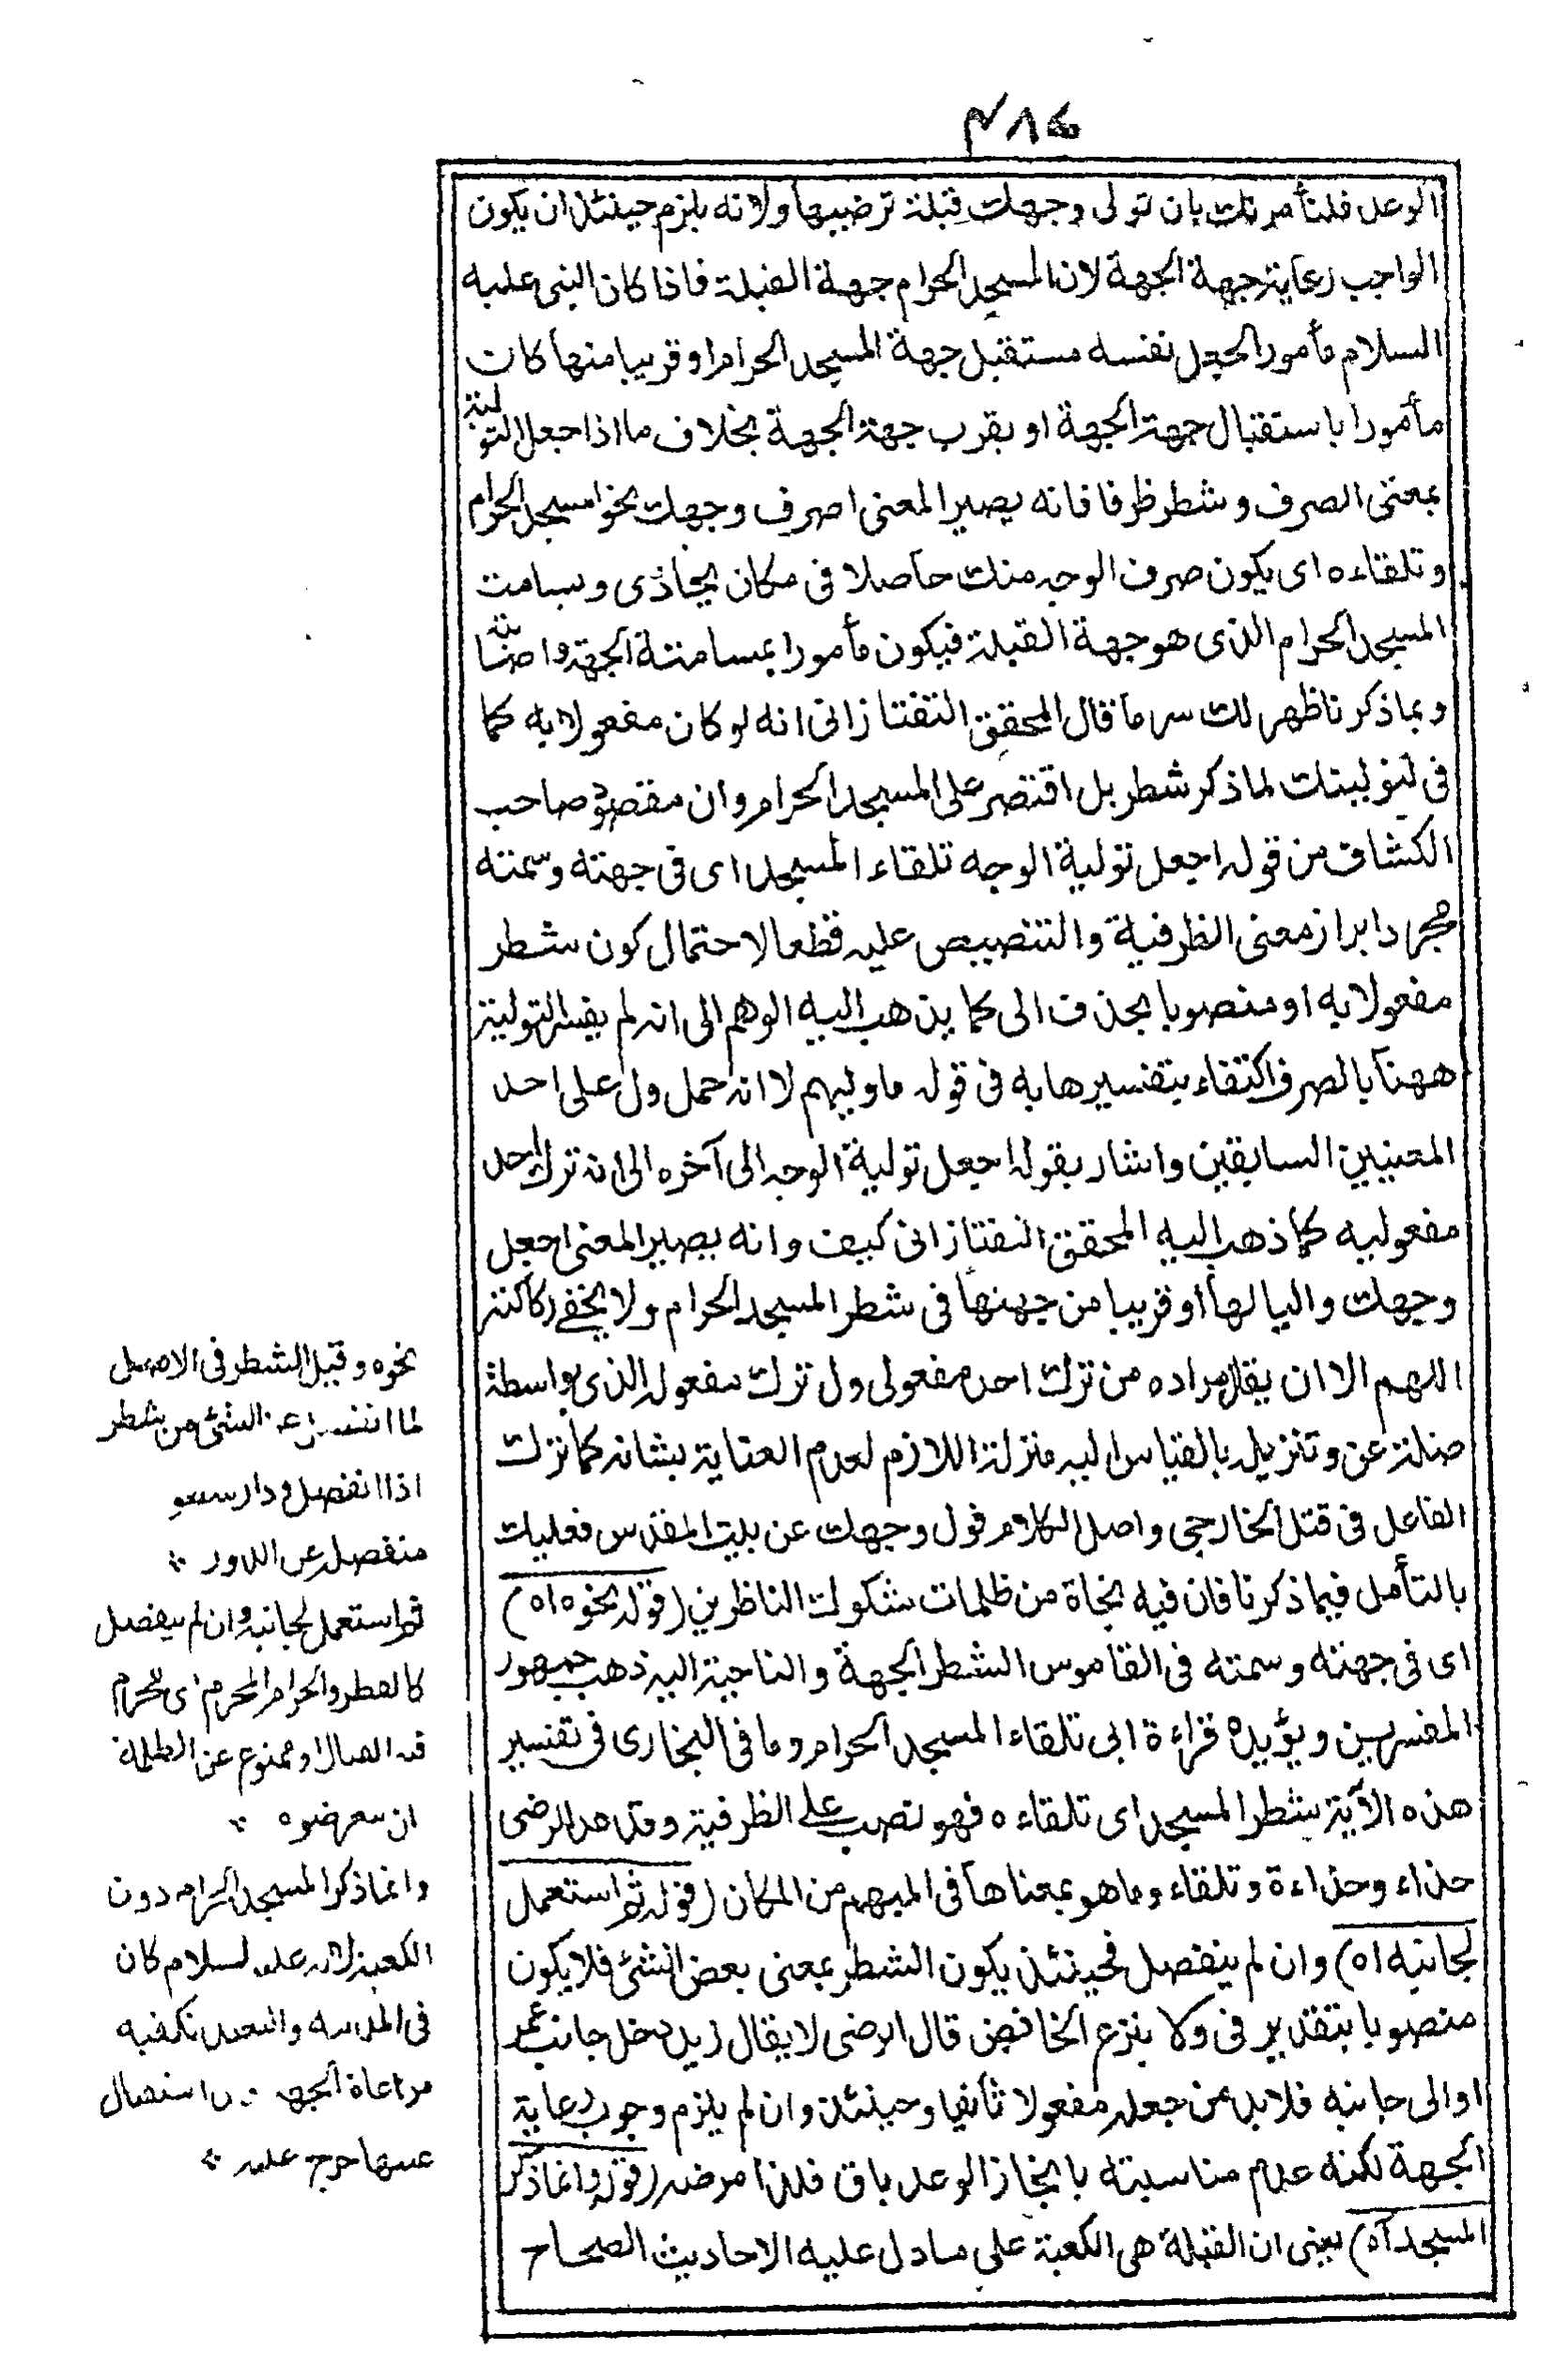 ٤١٨
الوعد فلنأمرنك بان تولى وجهك قبلة ترضيها ولانه يلزم حينئذ ان يكون
الواجب رعاية جهة الجهة لان المسجد الحرام جهة القبلة فاذا كان النبى عليه
السلام مأمورا لجعل نفسه مستقبل جهة المسجد الحرام او قريبا منها كان
مأمورا باستقبال جهة الجهة او بقرب جهة الجهة بخلاف ما اذا جعل التولية
بمعنى الصرف وشطر ظرفا فانه يصير المعنى اصرف وجهك نحو المسجد الحرام
وتلقاءه اى يكون صرف الوجه منك حاصلا فى مكان يحاذى ويسامت
المسجد الحرام الذى هو جهة القبلة فيكون مأمورا بمسامتة الجهة
وبما ذكرنا ظهر لك سر ما قال المحقق التفتازانى انه لو كان مفعولا به كما
فى لنولينك لما ذكر شطر بل اقتصر على المسجد الحرام وان مقصود صاحب
الكشاف من قوله اجعل تولية الوجه تلقاء المسجد اى فى جهته وسمته
مجرد ابراز معنى الظرفية والتنصيص عليه قطعا لاحتمال كون شطر
مفعولا به او منصوبا بحذف الى كما يذهب اليه الوهم الى انه لم يفسر التولية
ههنا بالصرف اكتفاء بتفسيرها به فى قوله ما وليهم لا انه حمل ول على احد
المعنيين السابقين واشار بقوله اجعل تولية الوجه الى آخره الى انه ترك احد
مفعوليه كما ذهب اليه المحقق التفتازانى كيف وانه يصير المعنى اجعل
وجهك واليا لها او قريبا من جهتها فى شطر المسجد الحرام ولا يخفى ركاكته
اللهم الا ان يقال مراده من ترك احد مفعولى ول ترك مفعوله الذى بواسطة
صلة عن وتنزيله بالقياس اليه منزلة اللازم لعدم العناية بشانه كما ترك
الفاعل فى قتل الخارجى واصل الكلام فول وجهك عن بيت المقدس فعليك
بالتأمل فيما ذكرنا فان فيه نجاة من ظلمات شكوك الناظرين (قوله نحوه اه)
اى فى جهته وسمته فى القاموس الشطر الجهة والناحية اليه ذهب جمهور
المفسرين ويؤيده قراءة ابى تلقاء المسجد الحرام وما فى البخارى فى تفسير
هذه الآية شطر المسجد اى تلقاءه فهو نصب على الظرفية وقد عد الرضى
حذاء وحذاءة وتلقاء وما هو بمعناها فى المبهم من المكان (قوله ثم استعمل
لجانبه اه) وان لم ينفصل فحينئذ يكون الشطر بمعنى بعض الشئ فلا يكون
منصوبا بتقدير فى ولا بنزع الخافض قال الرضى لا يقال زيد دخل جانب عمر
او الى جانبه فلا بد من جعله مفعولا ثانيا وحينئذ وان لم يلزم وجوب رعاية
الجهة لكنه عدم مناسبته بانجاز الوعد باق فلذا مرضه (قوله وانما ذكر
المسجد آه) يعنى ان القبلة هى الكعبة على ما دل عليه الاحاديث الصحاح
نحوه وقيل الشطر فى الاصل
لما انفصل عن الشئ من شطر
اذا انفصل ودار
منفصلة عن الدور
ثم استعمل لجانبه وان لم ينفصل
كالقطر والحرام المحرم اى محرم
فيه القتال او ممنوع عن الظلمة
ان يتعرضوه
وانما ذكر المسجد الحرام دون
الكعبة لانه عليه السلام كان
فى المدينة والبعيد تكفيه
مراعاة الجهة استقبال
عينها حرج عليه